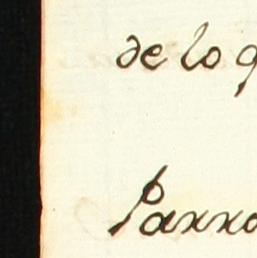 de lo q
Parra